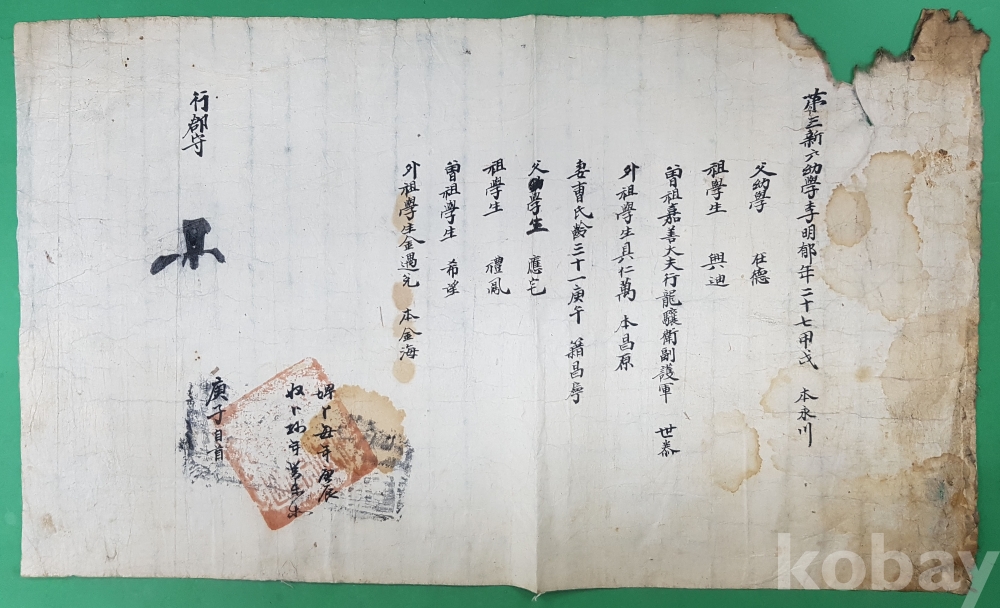 第三新六幼學李明郁年二十七甲戌 本永川
父幼學 在德
祖學生 興迪
曾祖嘉善大夫行龍驤衛副護軍 世泰
外祖學生具仁萬 本昌原
妻曺氏齡三十一庚午 籍昌寧
父學生 應宅
祖學生 禮鳳
曾祖學生 希望
外祖學生金遇兌 本金海
庚辰
庚子
行郡守
kobay